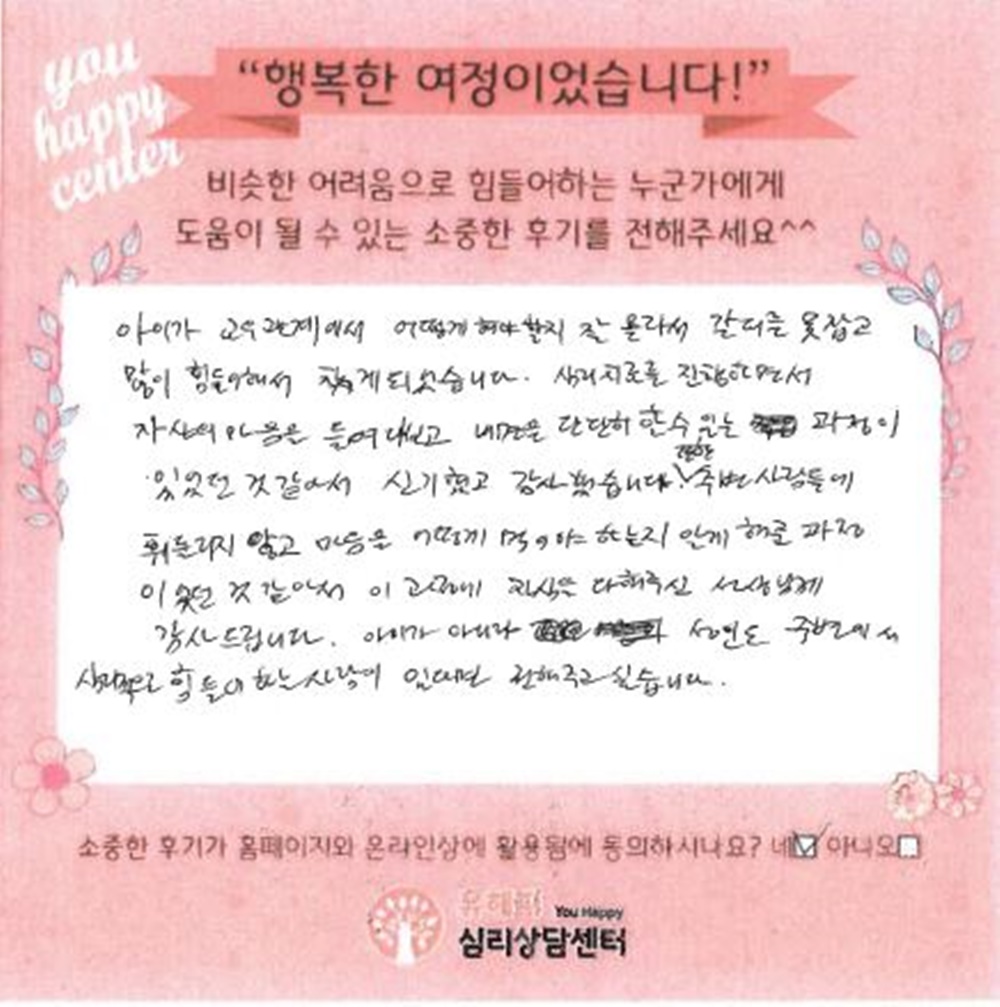 you
happy
center
“행복한 여정이었습니다!”
비슷한 어려움으로 힘들어하는 누군가에게
도움이 될 수 있는 소중한 후기를 전해주세요^^
아이가 교우관계에서 어떻게 해야 할지 잘 몰라서 갈피를 못잡고
많이 힘들어해서 찾게되었습니다. 심리치료를 진행하면서
자신의 마음을 들여다보고 내면을 단단히 할수 있는 과정이
있었던 것 같아서 신기했고 감사했습니다. 주변 사람들에
휘둘리지 않고 마음을 어떻게 먹어야 하는지 알게 해준 과정
이 었던 것 같아서 이 고생에 지식을 다해주신 선생님께
감사드립니다. 아이가 아니라 성인도 주변에서
심리적으로 힘들어 하는 사람이 있다면 전해주고 싶습니다.
소중한 후기가 홈페이지와 온라인상에 활용됨에 동의하시나요? 네 아니오
유해피 You Happy
심리상담센터